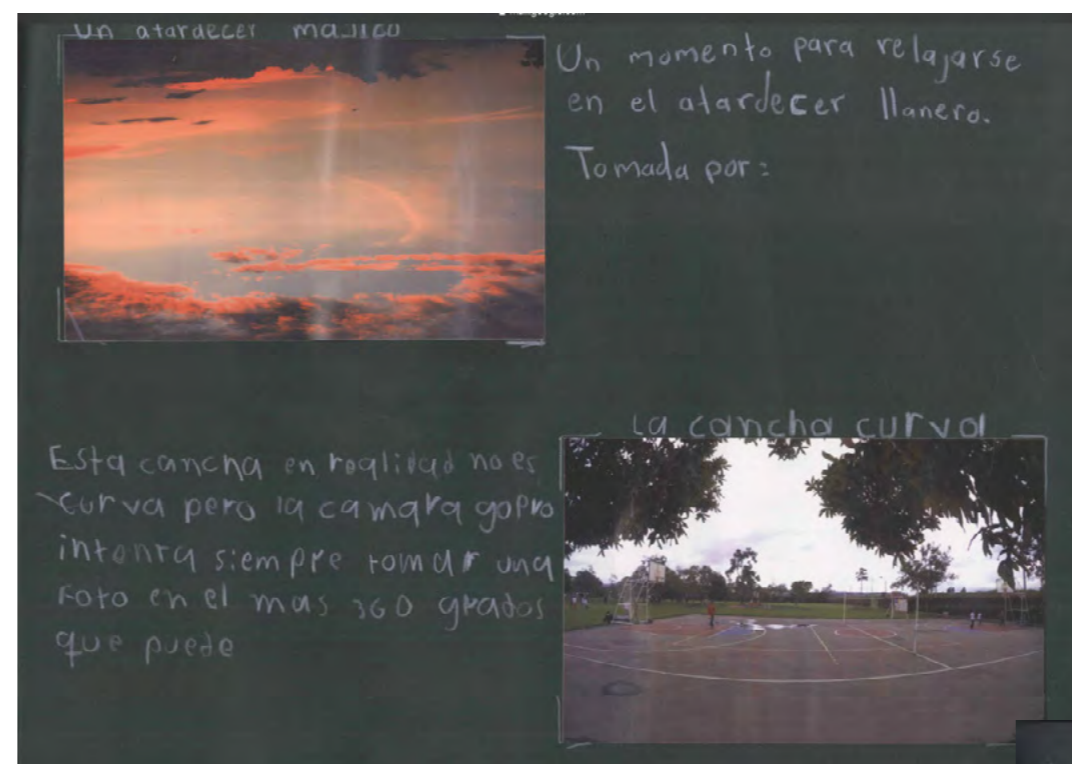 un atardecer majico
Un momento para relajarse
en el atardecer llanero.
Tomada por:
La cancha curva
Esta cancha en realidad no es
curva pero la camara gopro
intenta siempre tomar una
foto en el mas 360 grados
que puede